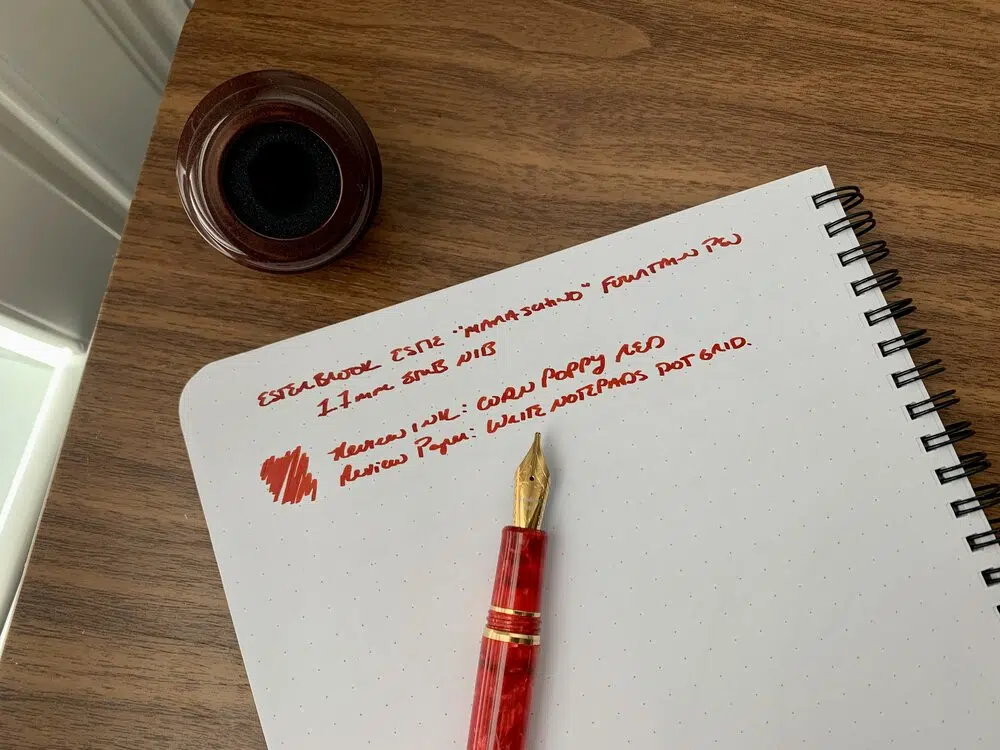 ESTERBROOK ESTIE "MARASCHINO" FOUNTAIN PEN
1.1mm STUB NIB
Review INK: CORN POPPY RED
Review Paper: WRITE NOTEPADS DOT GRID.